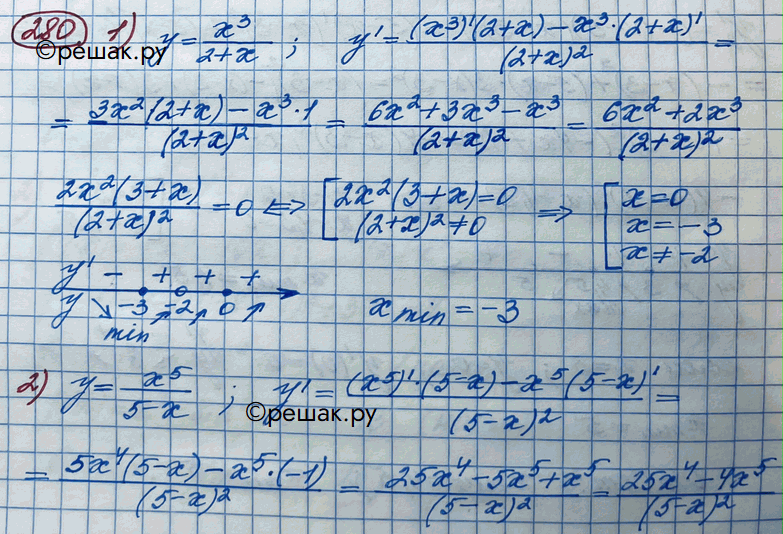 280. 1) y = x³/(2+x) ; y' = ((x³)'(2+x) − x³·(2+x)')/(2+x)² =
©решак.ру
= (3x²(2+x) − x³·1)/(2+x)² = (6x²+3x³−x³)/(2+x)² = (6x²+2x³)/(2+x)²
2x²(3+x)/(2+x)² = 0 ⇔ [2x²(3+x)=0 ⇒ [x=0
(2+x)²≠0 x=−3
x≠−2
y' − + + +
y ↘ −3 ↗ −2 ↗ 0 ↗ x min = −3
min
2) y = x⁵/(5−x) ; y' = ((x⁵)'·(5−x) − x⁵(5−x)')/(5−x)² =
©решак.ру
= (5x⁴(5−x) − x⁵·(−1))/(5−x)² = (25x⁴−5x⁵+x⁵)/(5−x)² = (25x⁴−4x⁵)/(5−x)²